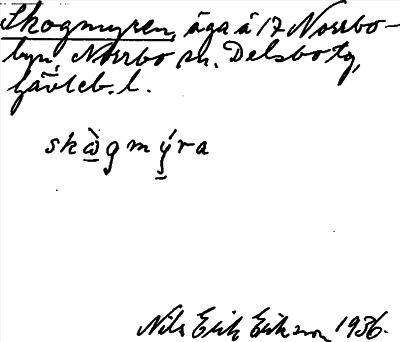 Skogmyren, äga å 17 Norrbo-
byn, Norrbo sn. Delsbo tg,
Gävleb. l.
skὼgmýra
Nils Erik Eriksson 1936.